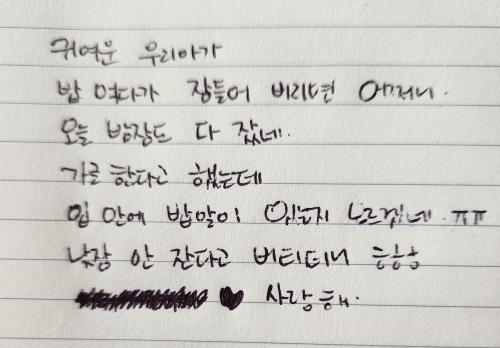 귀여운 우리아가
밥 먹다가 잠들어 버리면 어쩌니.
오늘 밤잠도 다 잤네.
가글 한다고 했는데
입 안에 밥알이 있는지 모르겠네. ㅠㅠ
낮잠 안 잔다고 버티더니 흐흐흐
사랑해.